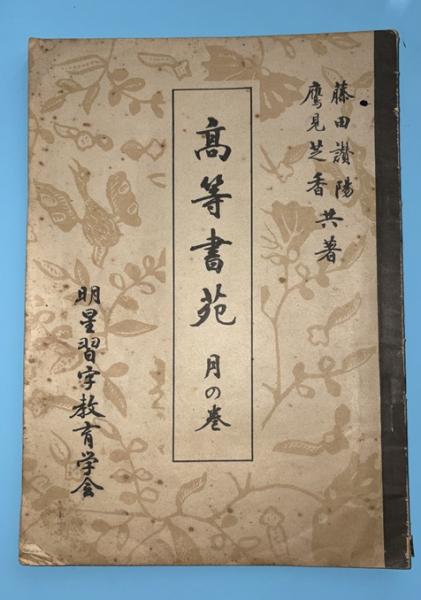 藤田讃陽
鷹見芝香 共著
高等書苑 月の巻
明星習字教育学会